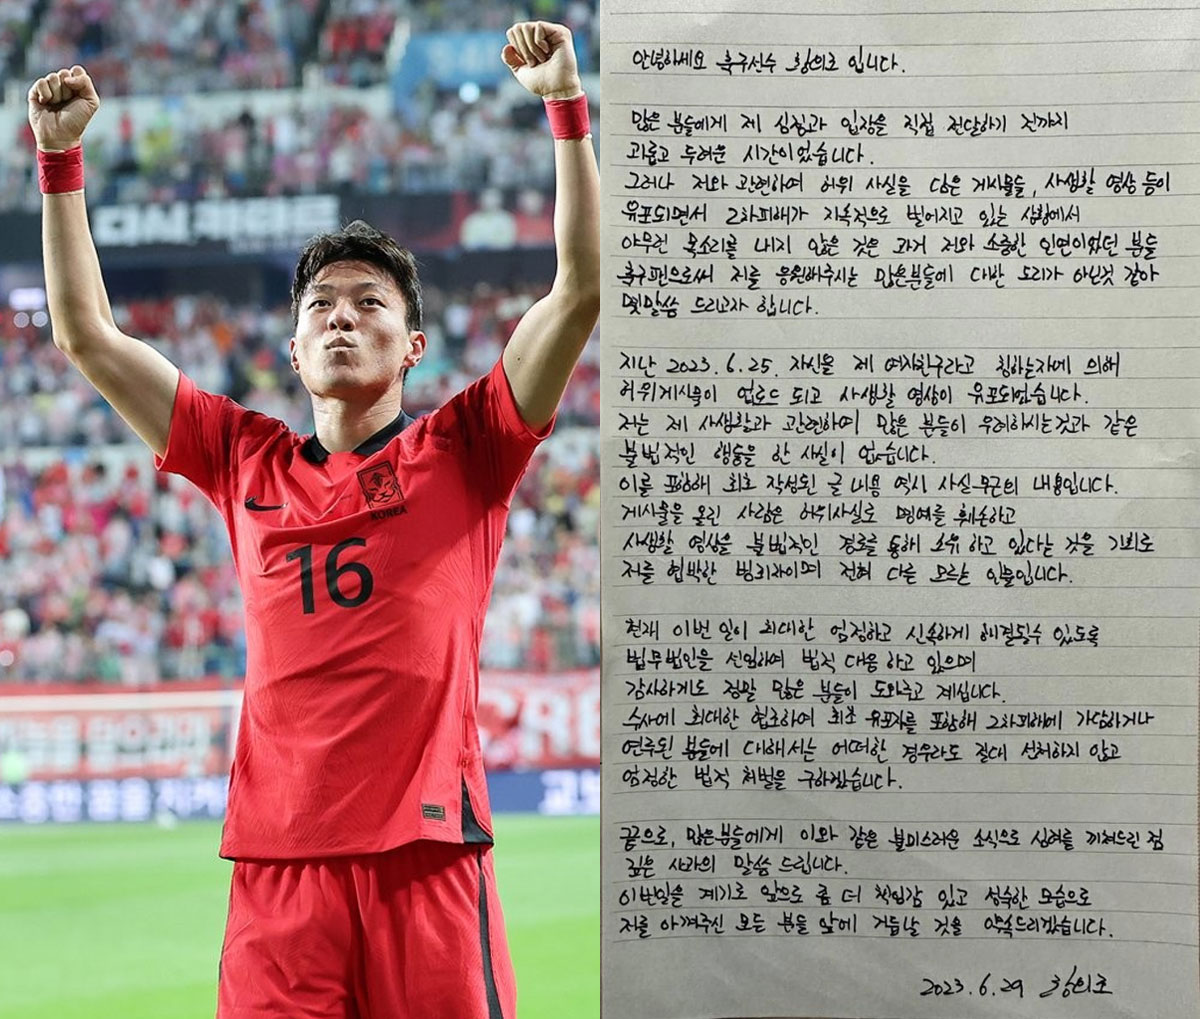 KOREA
16
안녕하세요 축구선수 황의조 입니다.
많은 분들에게 제 심정과 입장을 직접 전달하기 전까지
괴롭고 두려운 시간이었습니다.
그러나 저와 관련하여 허위 사실을 담은 게시물들, 사생활 영상 등이
유포되면서 2차피해가 지속적으로 벌어지고 있는 상황에서
아무런 목소리를 내지 않은 것은 과거 저와 소중한 인연이었던 분들
축구팬으로써 저를 응원해주시는 많은분들에 대한 도리가 아닌것 같아
몇말씀 드리고자 합니다.
지난 2023.6.25. 자신을 제 여자친구라고 칭하는자에 의해
허위게시물이 업로드 되고 사생활 영상이 유포되었습니다.
저는 제 사생활과 관련하여 많은 분들이 우려하시는것과 같은
불법적인 행동을 한 사실이 없습니다.
이를 포함해 최초 작성된 글 내용 역시 사실무근의 내용입니다.
게시물을 올린 사람은 허위사실로 명예를 훼손하고
사생활 영상을 불법적인 경로를 통해 소유 하고 있다는 것을 기회로
저를 협박한 범죄자이며 전혀 다를 모르는 인물입니다.
현재 이번 일이 최대한 엄정하고 신속하게 해결될수 있도록
법무법인을 선임하여 법적 대응 하고 있으며
감사하게도 정말 많은 분들이 도와주고 계십니다.
수사에 최대한 협조하여 최초 유포자를 포함해 2차피해에 가담하거나
연루된 분들에 대해서는 어떠한 경우라도 절대 선처하지 않고
엄정한 법적 처벌을 구하겠습니다.
끝으로, 많은분들에게 이와 같은 불미스러운 소식으로 심려를 끼쳐드린 점
깊은 사과의 말씀 드립니다.
이번일을 계기로 앞으로 좀 더 책임감 있고 성숙한 모습으로
저를 아껴주신 모든 분들 앞에 거듭날 것을 약속드리겠습니다.
2023.6.29 황의조